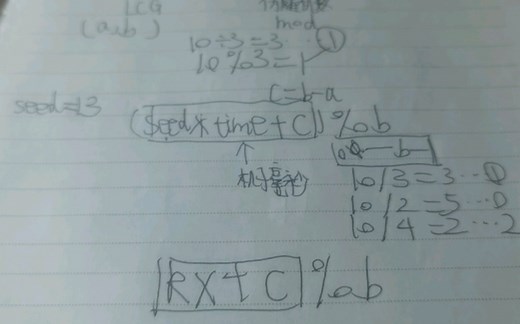 LCG
(a,b)
mod
10÷3=3…①
10%3=1
C=b-a
seed=13
(Seed×time+C)%b
10/3=3…①
10/2=5…0
10/4=2…2
kx+c%b